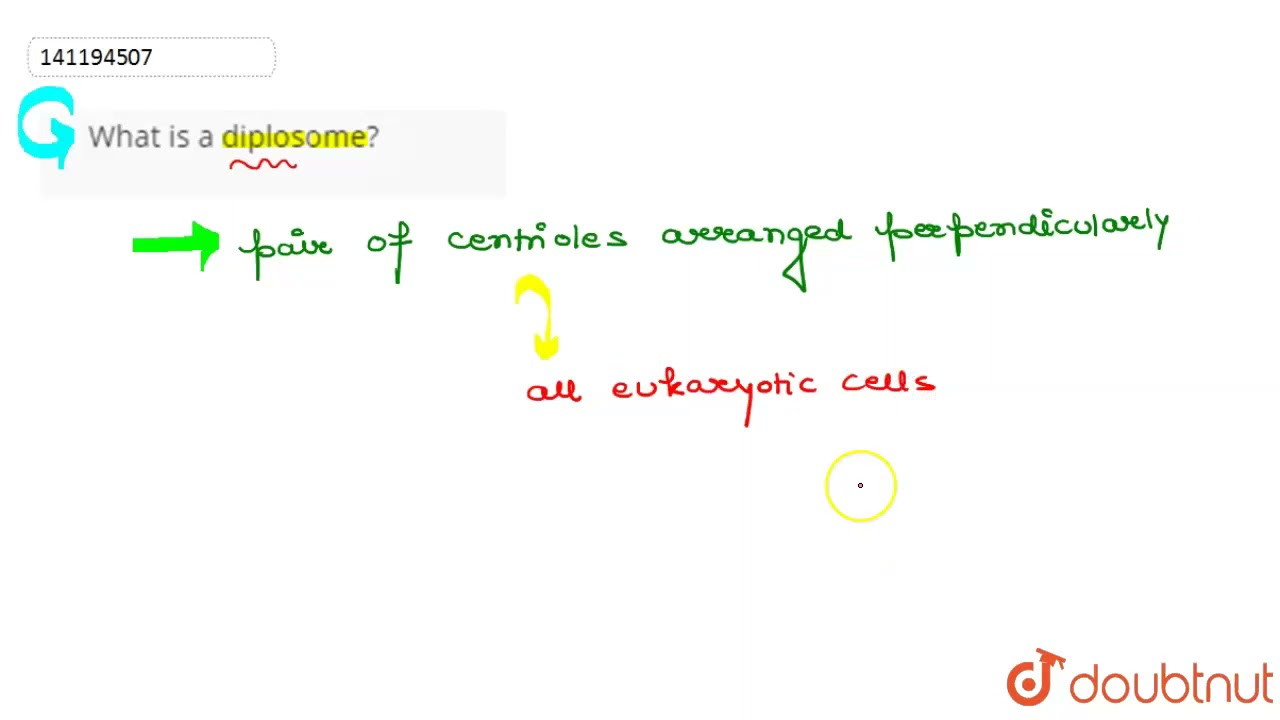 141194507
What is a diplosome?
pair of centrioles arranged perpendicularly
all eukaryotic cells
doubtnut